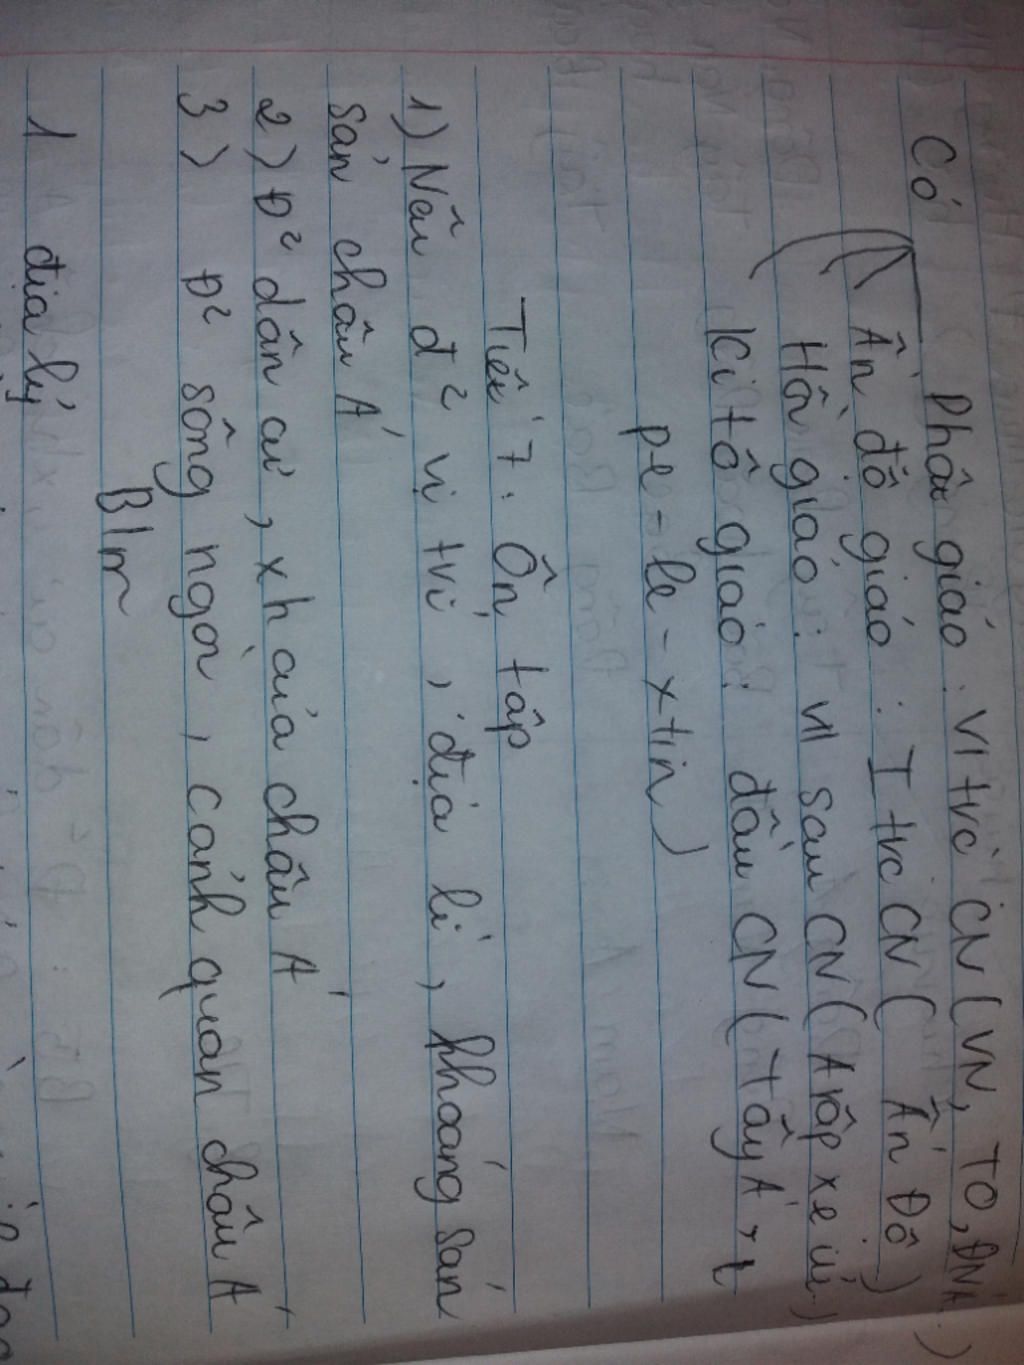 Có
Phật giáo : VI trc CN (VN, TQ, ĐNA..)
Ấn độ giáo : I trc CN ( Ấn Độ )
Hồi giáo : VII sau CN ( Arập xe út )
Ki tô giáo : đầu CN ( Tây Á,
pe - le - xtin )
Tiết 7 : Ôn tập
1) Nêu đ² vị trí , địa lí , khoáng sản
sản châu Á
2) Đ² dân cư , xh của châu Á
3) Đ² sông ngòi , cảnh quan châu Á
Blm
1 địa lý